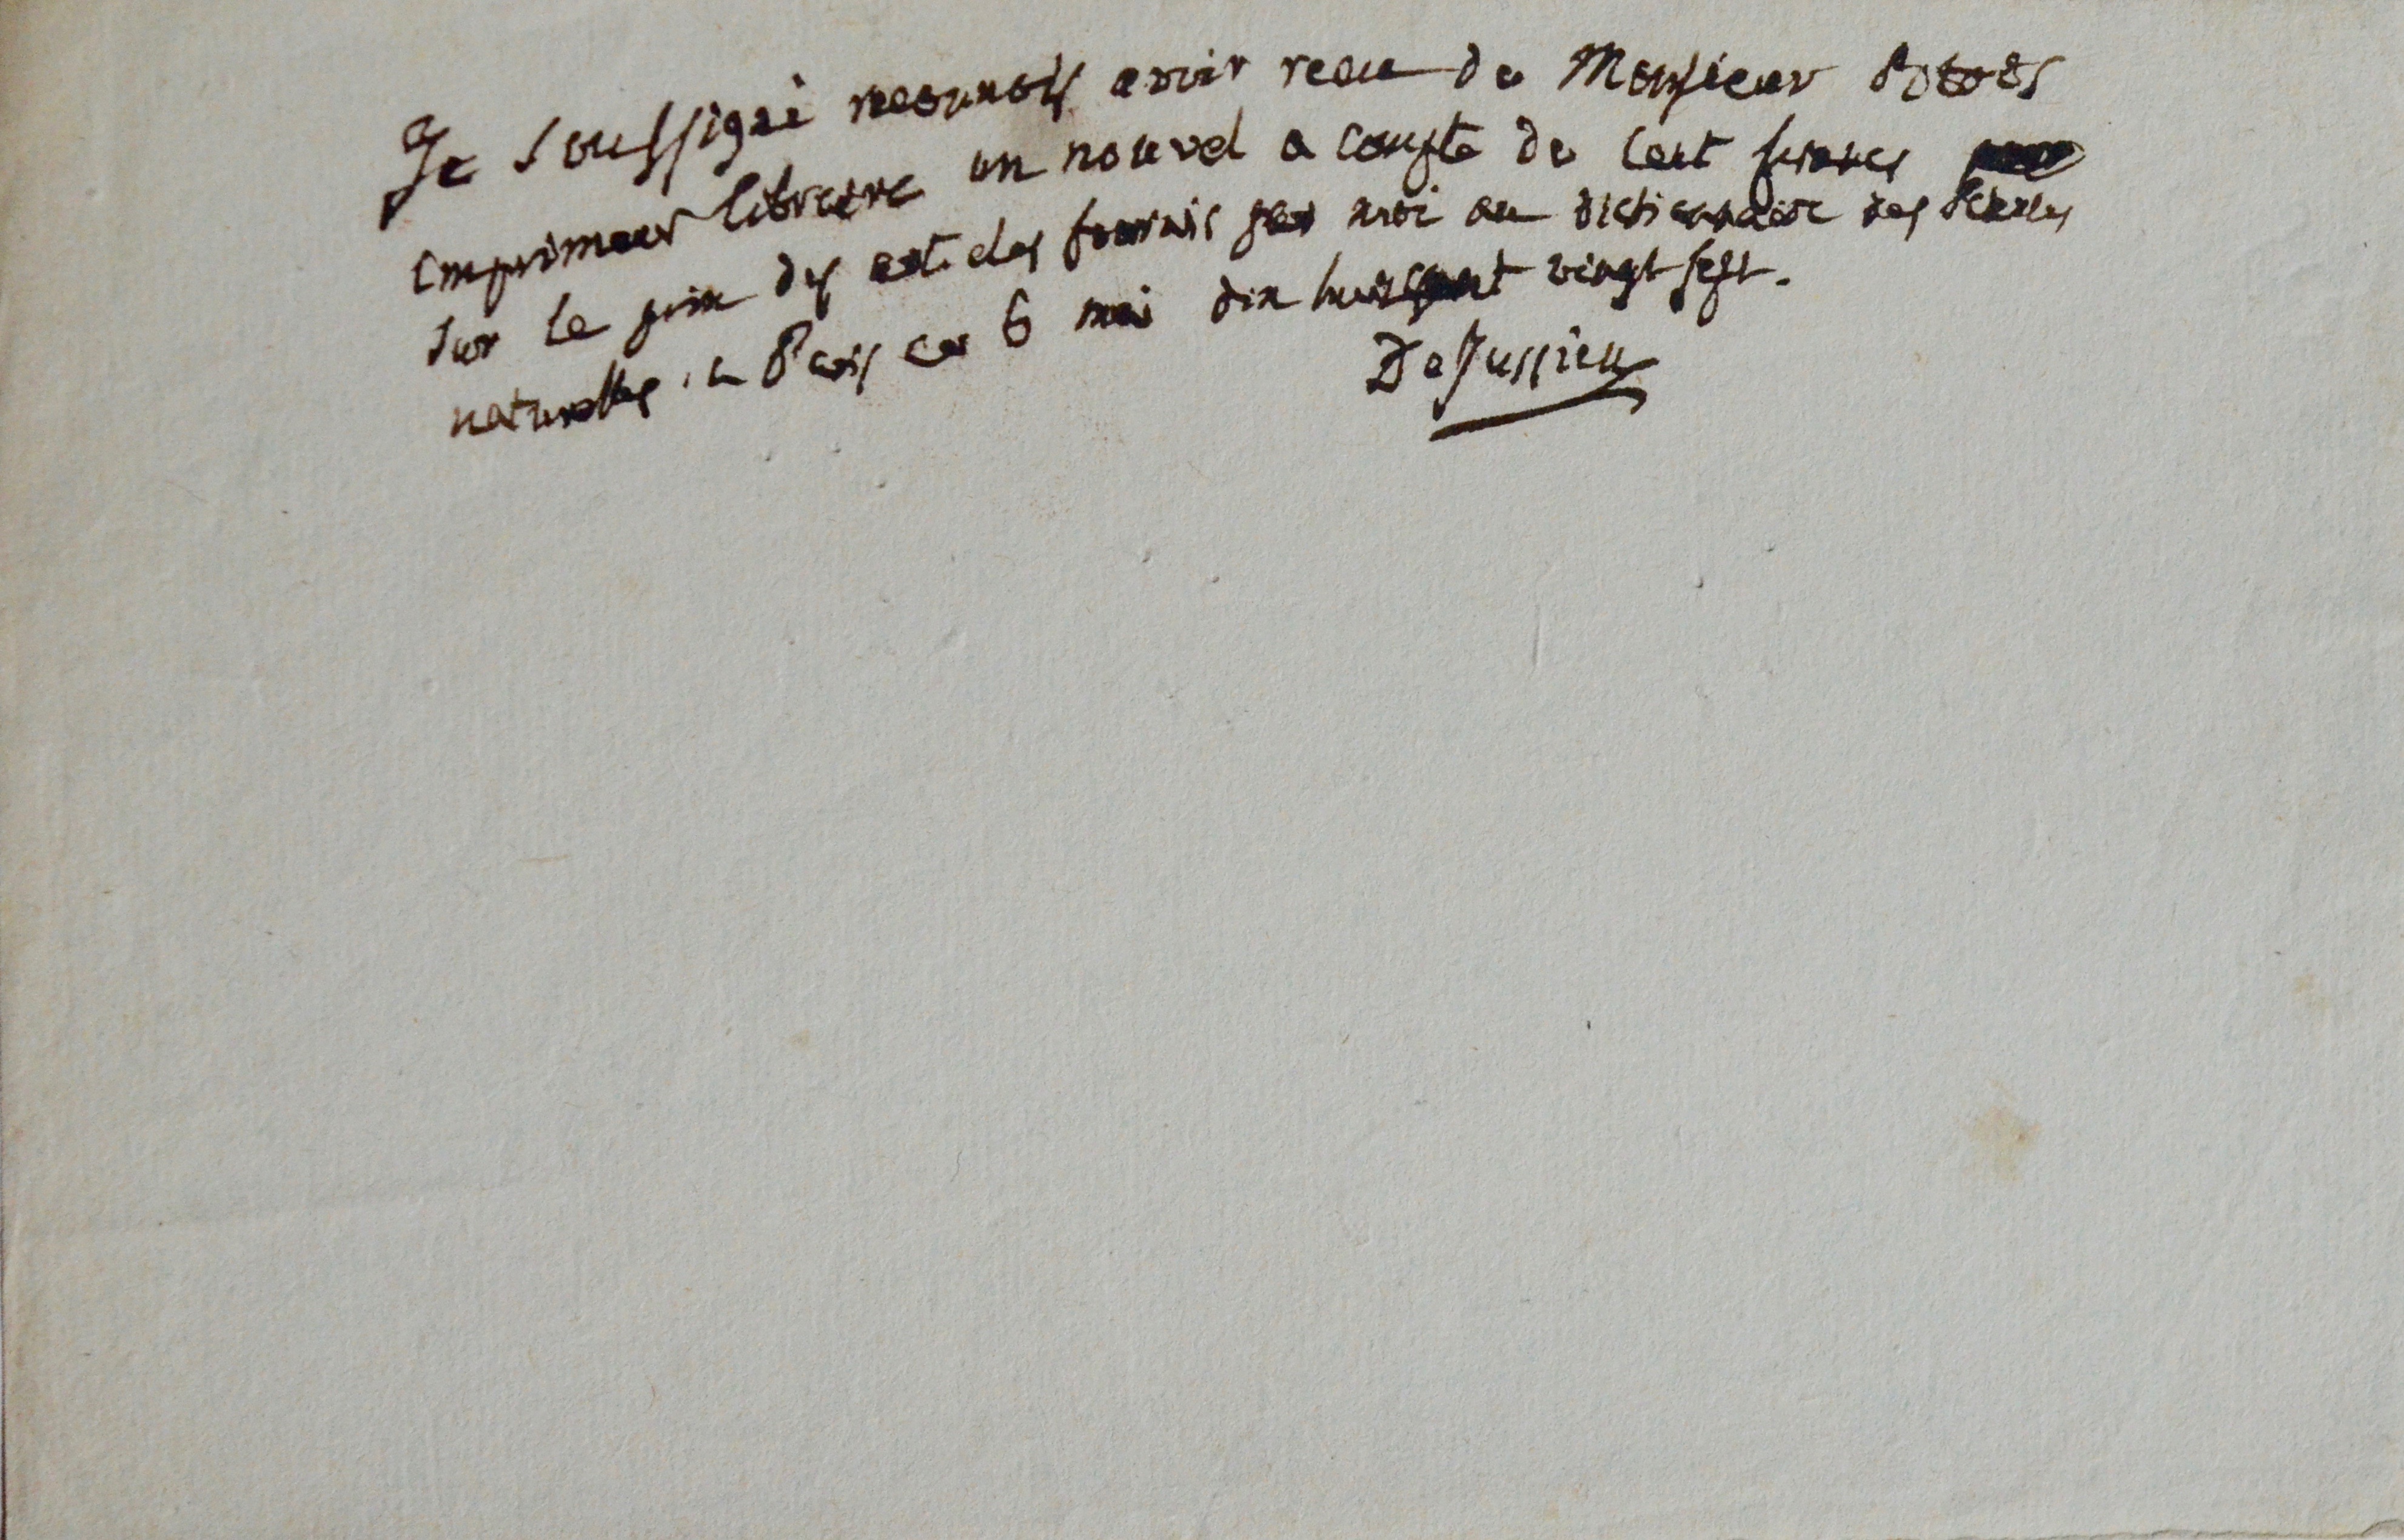 Je soussigné reconnois avoir recu de Monsieur
imprimeur libraire un nouvel a compte de cent francs
sur le prix des articles fournis par moi au dictionnaire des sciences
naturelles. a Paris ce 6 mai dix huit cent vingt sept.
De Jussieu